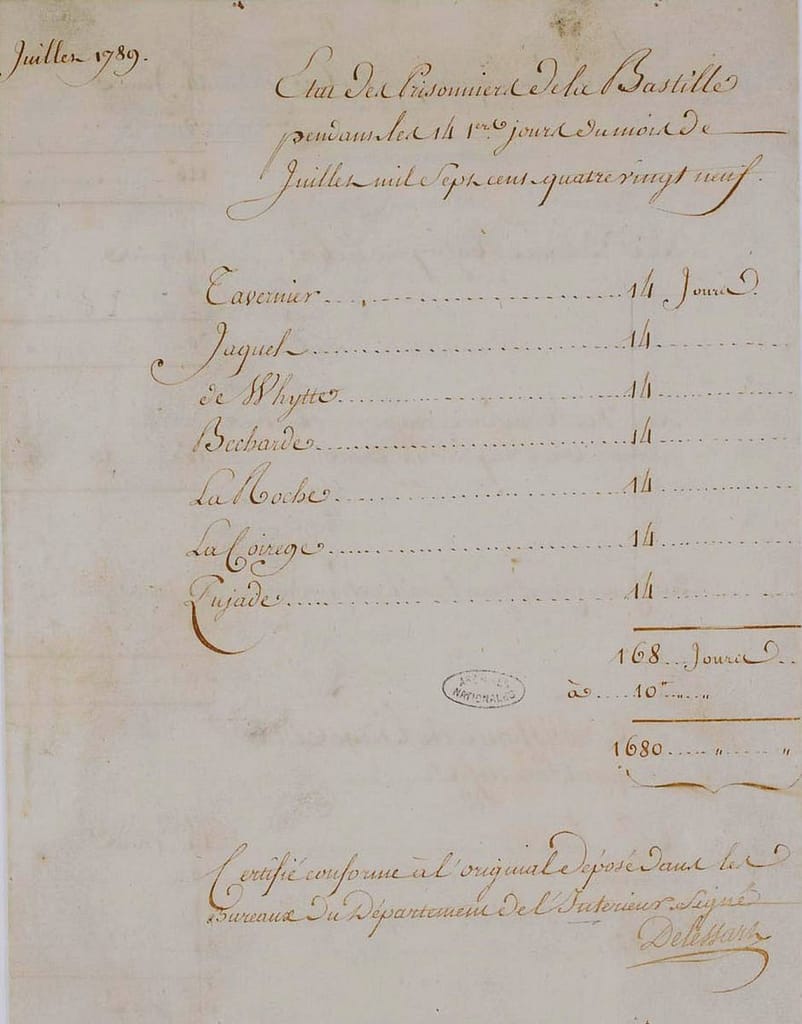 Juillet 1789.
Etat des Prisonniers de la Bastille
pendant les 14 1ers jours du mois de
Juillet mil Sept cent quatre vingt neuf.
Tavernier 14 Jours.
Jaquet 14
de Whytte 14
Becharde 14
La Roche 14
La Coirege 14
Pujade 14
168 Jours
à 10# " "
1680 " "
ARCHIVES
NATIONALES
Certifié conforme à l'original déposé dans les
Bureaux Du Département de l'Interieur. Signé
Delessart